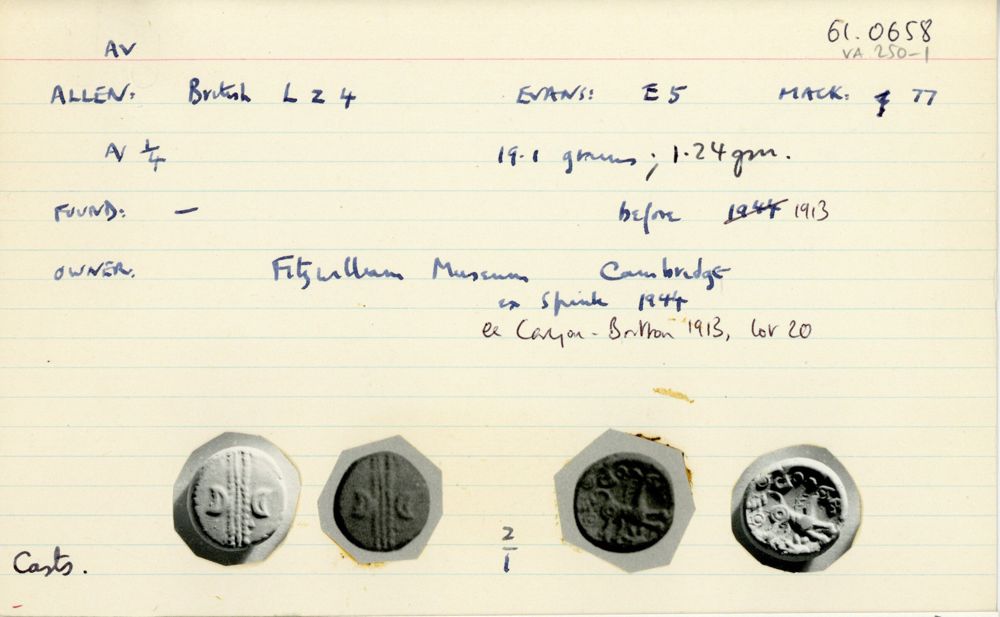 AV
61.0658
VA 250-1
ALLEN: British L Z 4 EVANS: E 5 MACK: 77
AV 1/4 19.1 grains; 1.24 gm.
FOUND: — before 1944 1913
OWNER. Fitzwilliam Museum Cambridge
ex Spink 1944
ex Carlyon-Britton 1913, lot 20
2/1
Casts.